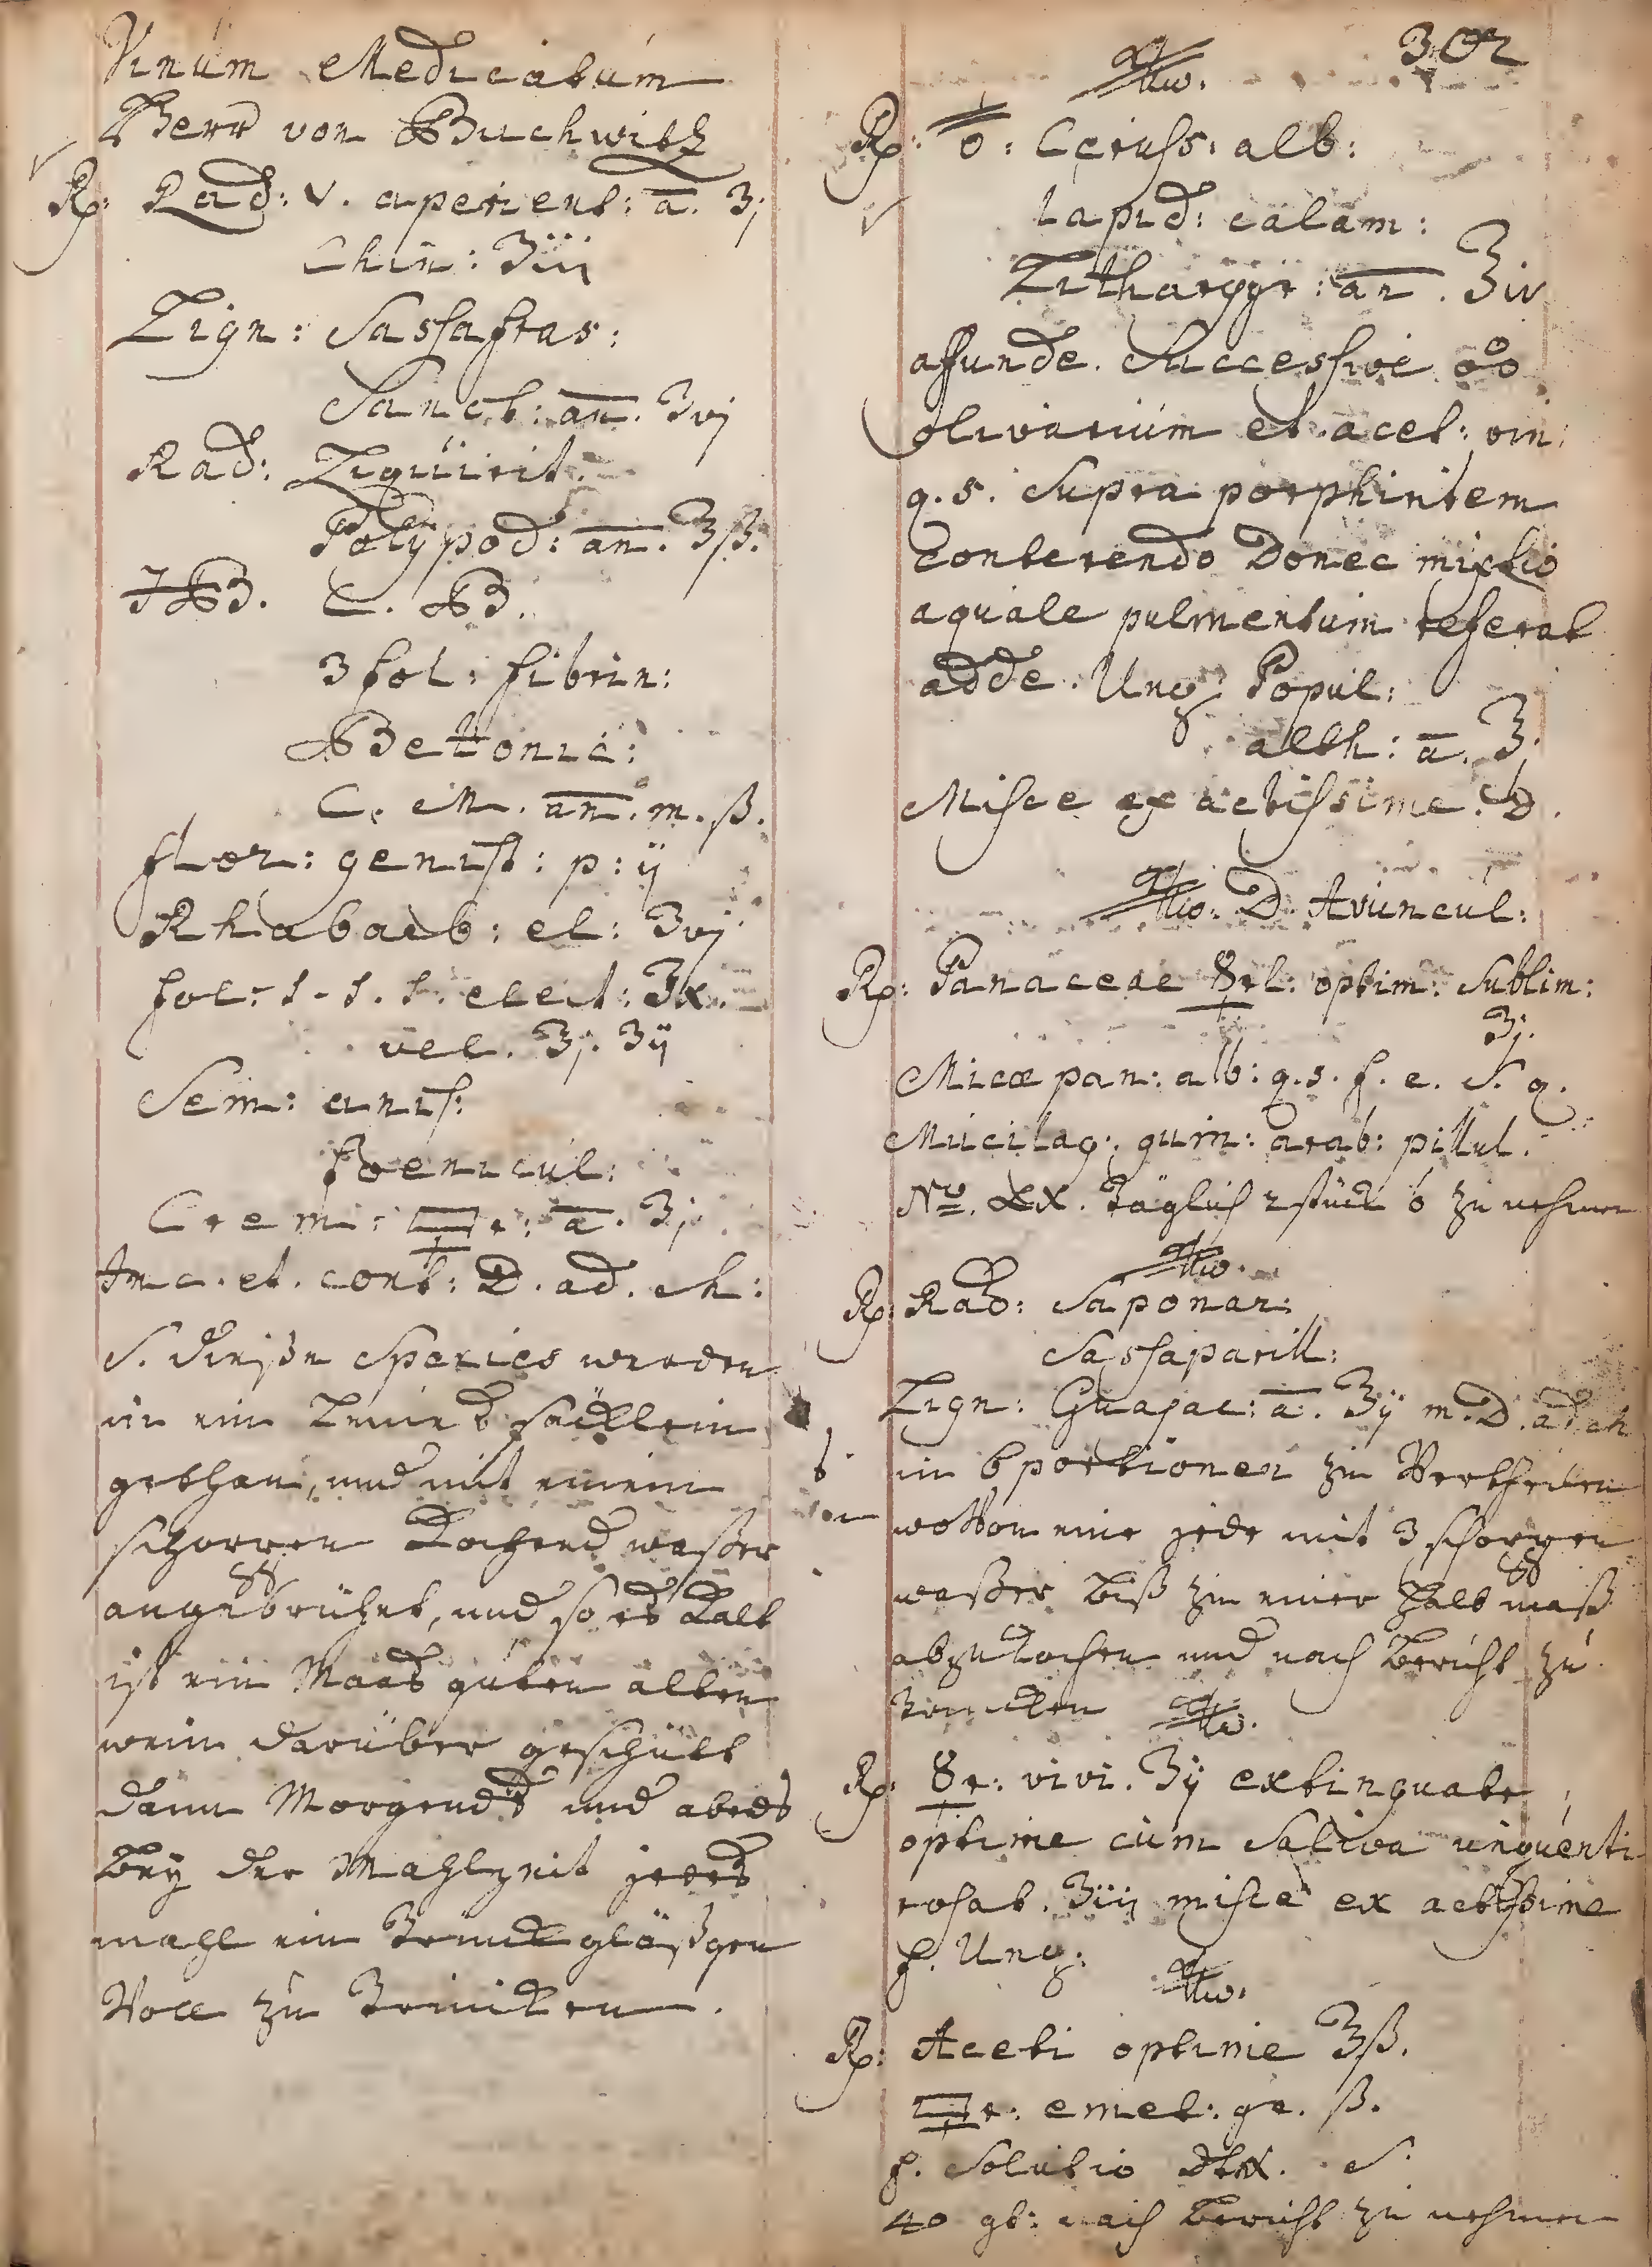 Vinum Medicatum
Herr von Buchwitz
Rp: Rad: V. aperient: a. ʒj
Chin: ʒiii
Lign: Sassafras:
Sanct: an. ʒvj
Rad: Liquirit.
Polypod: an. ʒß.
HB. C. B.
3 fol: fibrin:
Betonic:
C. M. an. m. ß.
flor: genist: p: ij
Rhabarb: el: ʒvj
fol: s. s. s. elect: ʒx.
vel. ʒj. ʒij
Sem: anis:
foenicul:
Crem: 🜿r: a. ʒj
Inc. et. cont: D. ad. ch:
S. dieße Species werden
in ein leinet säcklein
gethan, und mit einem
schoppen kochend waßer
angebrühet, und so es kalt
ist ein Maas guten alten
wein darüber geschütt
dann Morgends und abeds
bey der Mahlzeit jedes
mahl ein Trinckgläßgen
Voll zu Trincken.
302
Rp: o: Ceruss: alb:
lapid: calam:
Lithargyr: an. ʒiv
affunde. Successive
olivarum et acet: vin:
q. s. Supra porphiritem
conterendo Donec mixtio
aquale pulmentum referat
adde. Ung: Popul:
alth: a. ʒ
Misce exactissime. D.
D. Avuncul:
Rp: Panaceae ☿rl: optim: Sublim:
ʒj.
Micæ pan: alb: q. s. f. c. S. q.
Mucilag: gum: arab: pillul.
No. XX. Täglich 2 stück zu nehmen
Rp: Rad: Saponar:
Sassaparill:
Lign: Guajac: a. ʒij m. D. ad ch
in 6 portionen zu Vertheilen
wovon eine jede mit 3 schoppen
waßer biß zu einer halb maß
abzukochen und nach bericht zu
trincken
Rp: ☿r: vivi. ʒij extinguatr
optime cum Saliva unguenti
rosat. ʒiij misce exactissime
f. Ung:
Rp: Aceti optime ʒß.
🜿r: emet: gr. ß.
f. Solutio dtr. S.
40 gt: nach bericht zu nehmen